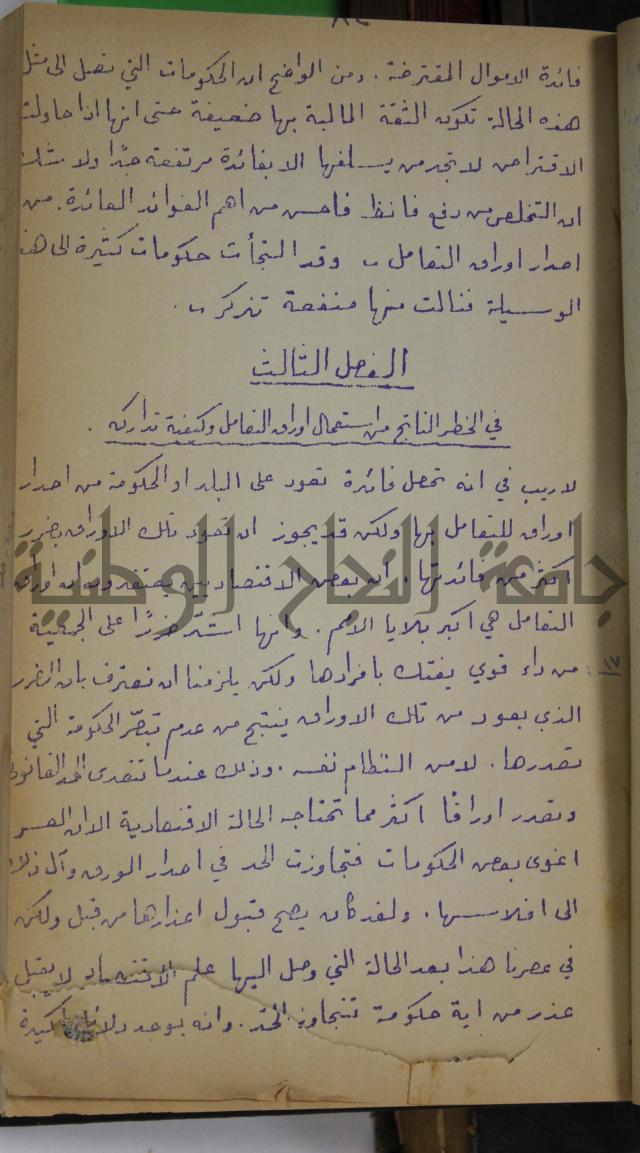 فائدة الاموال المقترضة . ومن الواضح ان الحكومات التي تصل الى مثل
هذه الحالة تكون الثقة المالية بها ضعيفة حتى انها اذا حاولت
الاقتراض لا تجد من يسلفها الا بفائدة مرتفعة جدًا ولا شك
ان التخلص من دفع فائظ فاحش من اهم الفوائد العائدة . من
اصدار اوراق التعامل .. وقد التجأت حكومات كثيرة الى هذه
الوسيلة فنالت منها منفعة تذكر .. .
الفصل الثالث
في الخطر الناتج من استعمال اوراق التعامل وكيفية تداركه .
لا ريب في انه تحصل فائدة تعود على البلاد او الحكومة من اصدار
اوراق للتعامل بها ولكن قد يجوز ان تعود تلك الاوراق بضرر
اكثر من فائدتها . ان بعض الاقتصاديين يعتقدون ان اوراق
التعامل هي اكبر بلايا الامم . وانها اشدّ ضررًا على الجمعية
من داء قوي يفتك بافرادها ولكن يلزمنا ان نعترف بان الضرر
الذي يعود من تلك الاوراق ينتج من عدم تبصّر الحكومة التي
تصدرها . لا من النظام نفسه . وذلك عندما تتعدى الحد القانوني
وتصدر اوراقًا اكثر مما تحتاجه الحالة الاقتصادية الا ان العسر
اغوى بعض الحكومات فتجاوزت الحد في اصدار الورق وآل ذلك
الى افلاسها . ولقد كان يصح قبول اعذارها من قبل ولكن
في عصرنا هذا بعد الحالة التي وصل اليها علم الاقتصاد لا يقبل
عذر من اية حكومة تتجاوز الحدّ . وانه يوجد دلائل اكيدة
١٧
جامعة النجاح الوطنية